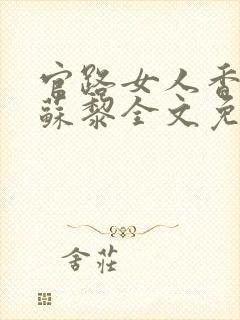 官路女人香
蘇黎全文免
舍莊